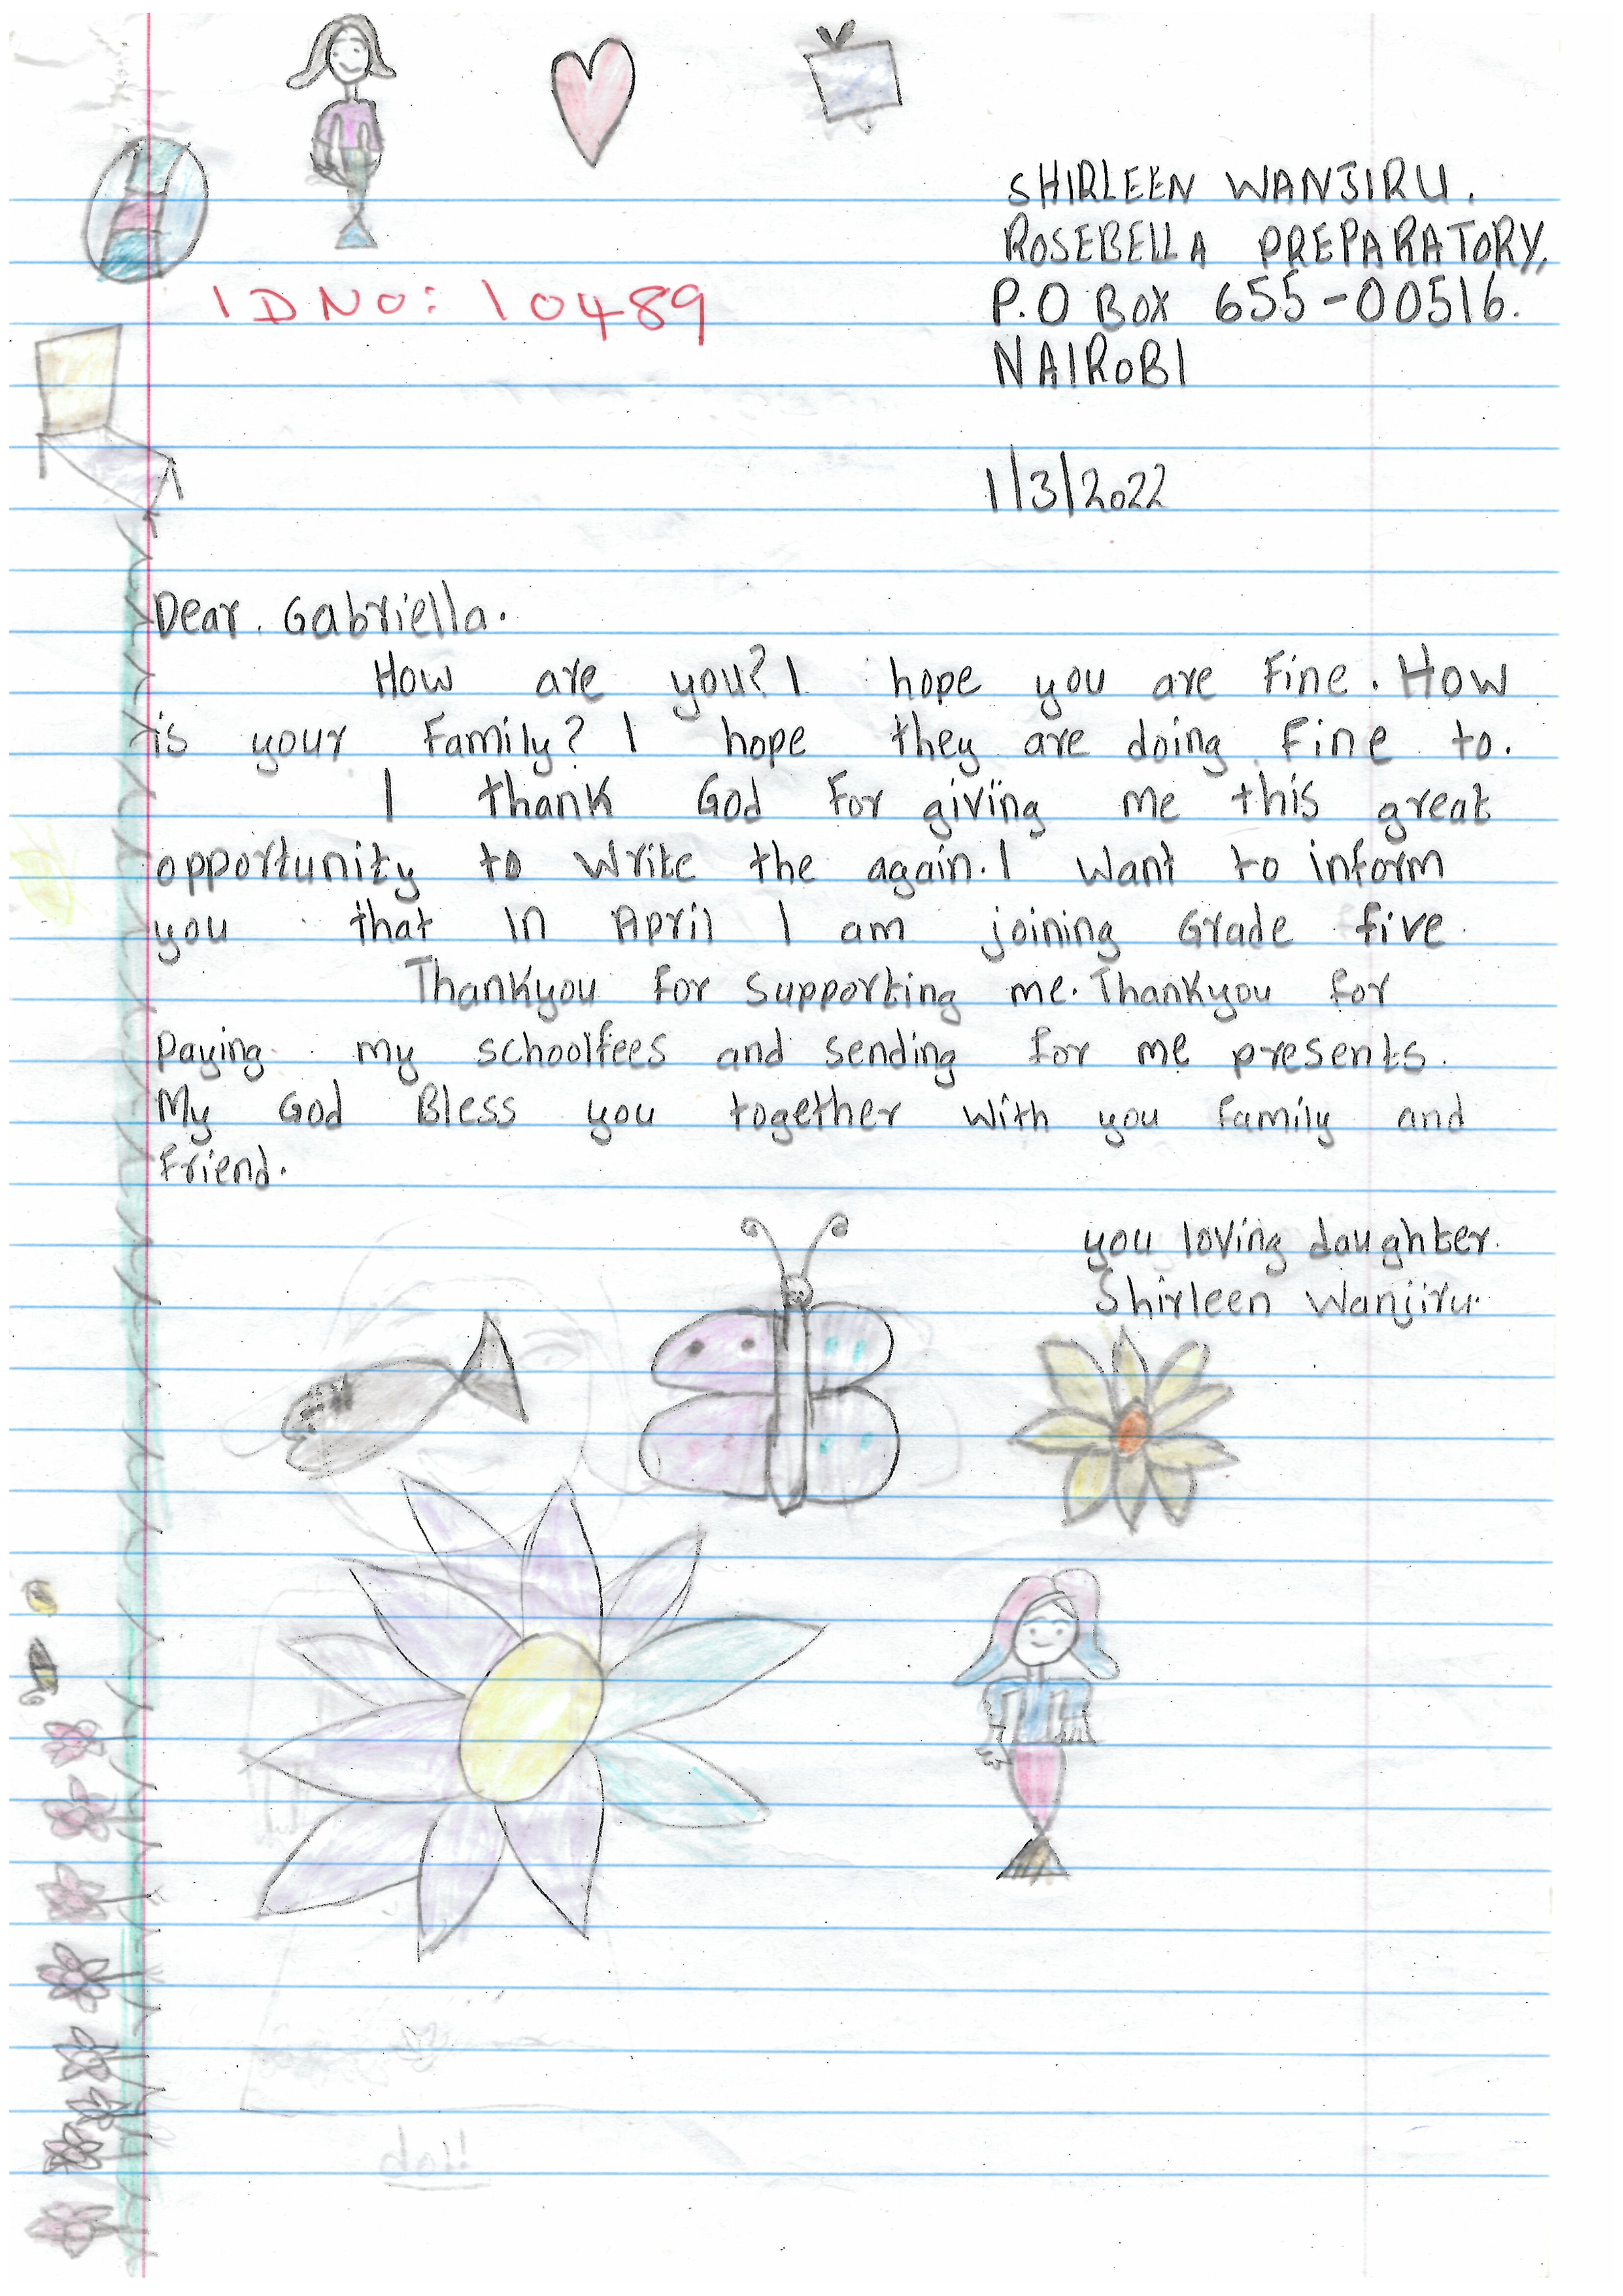 SHIRLEEN WANJIRU.
ROSEBELLA PREPARATORY,
ID NO: 10489
P.O BOX 655-00516.
NAIROBI
1/3/2022
Dear. Gabriella.
How are you? I hope you are Fine. How
is your Family? I hope they are doing Fine to.
I thank God For giving me this great
opportunity to write the again. I want to inform
you that in April I am joining Grade five
Thankyou For supporting me. Thankyou for
paying my schoolfees and sending for me presents.
My God Bless you together with you family and
friend.
you loving daughter.
Shirleen Wanjiru.